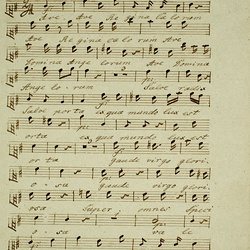 Ave Ave Regina Cælorum
Ave Regina cælorum Ave
Domina Angelorum Ave Domina
Angelorum Salve radix
Salve porta ex qua mundo lux est
orta ex qua mundo lux est
orta gaude virgo glori
osa gaude virgo glori
osa super omnes speci
osa vale